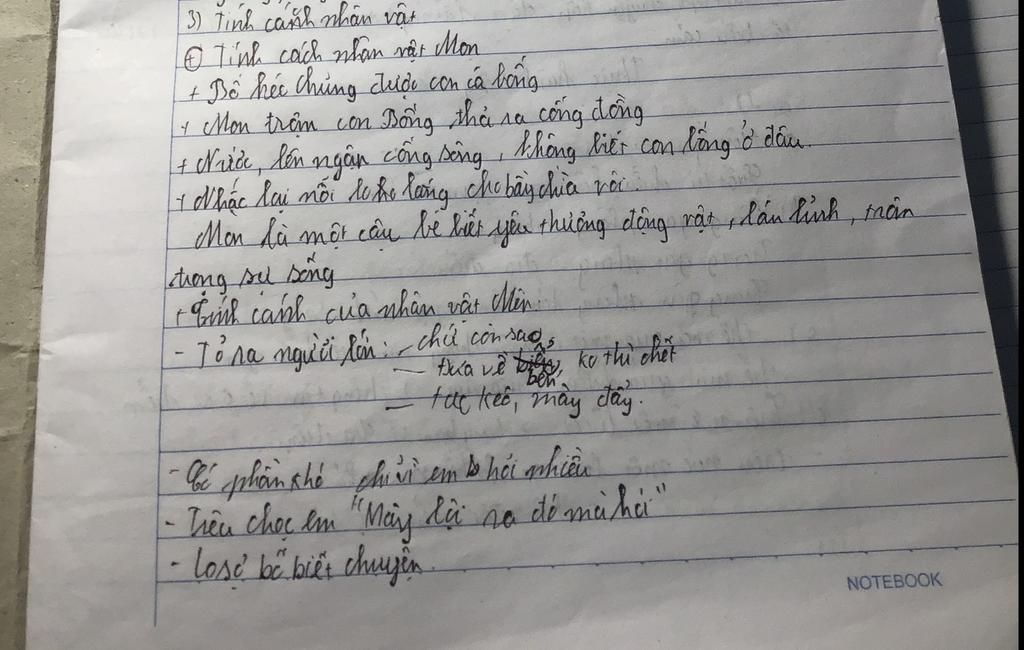 3) Tính cách nhân vật
+ Tính cách nhân vật Mon
+ Bố kéc chũng được con cá bống
+ Mon trộm con Bống, thả ra cống đồng
+ Nước, lên ngân cống sông, không biết con bống ở đâu.
+ Nhắc lại nỗi lo lắng cho bầy chìa vôi.
Mon là một cậu bé biết yêu thương động vật, lán lỉnh, trân
trọng sự sống
+ Tính cánh của nhân vật Mên.
- Tỏ ra người lớn: - chứ còn sao
- Đưa về bến, ko thì chết
- tao kéo, mày đẩy.
- Có phần khó chỉ vì em hỏi nhiều
- Trêu chọc em "Mày lội ra đó mà hỏi"
- lo sợ bố biết chuyện.
NOTEBOOK